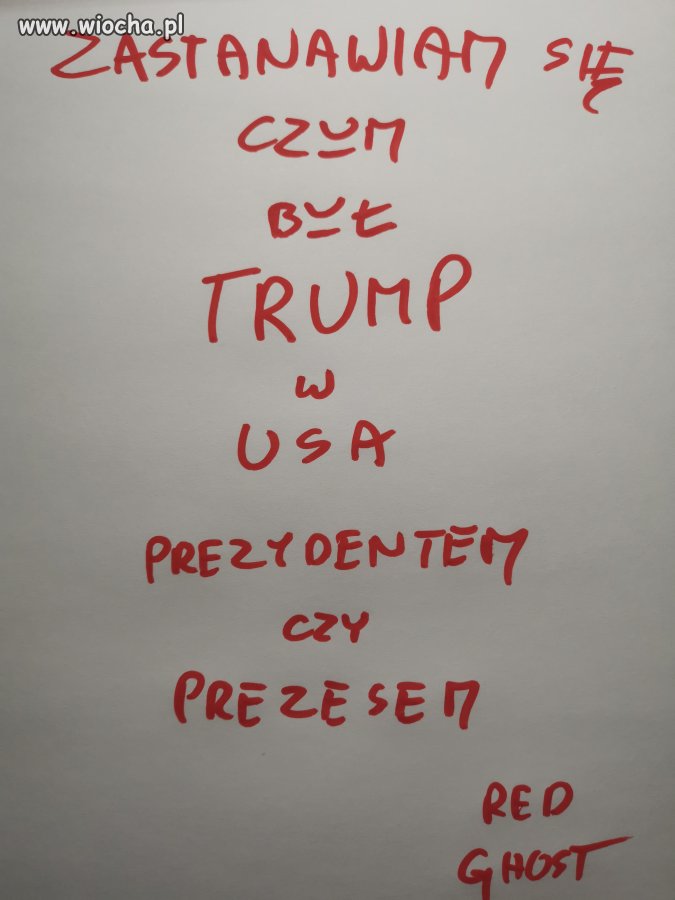 www.wiocha.pl
ZASTANAWIAM SIĘ
CZYM
BYŁ
TRUMP
W
USA
PREZYDENTEM
CZY
PREZESEM
RED
GHOST